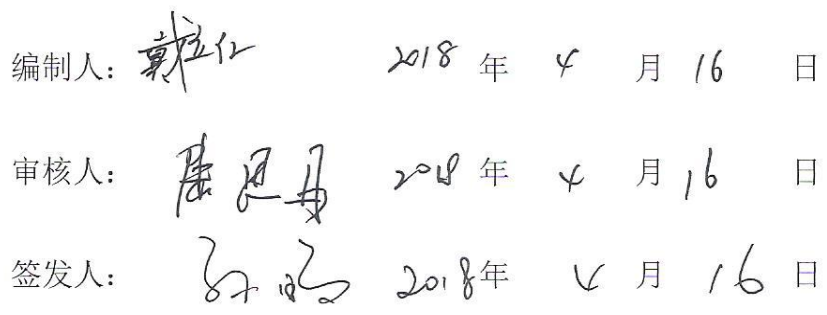 编制人：戴立仁 2018 年 4 月 16 日
审核人： 2018 年 4 月 16 日
签发人： 2018年 4 月 16 日